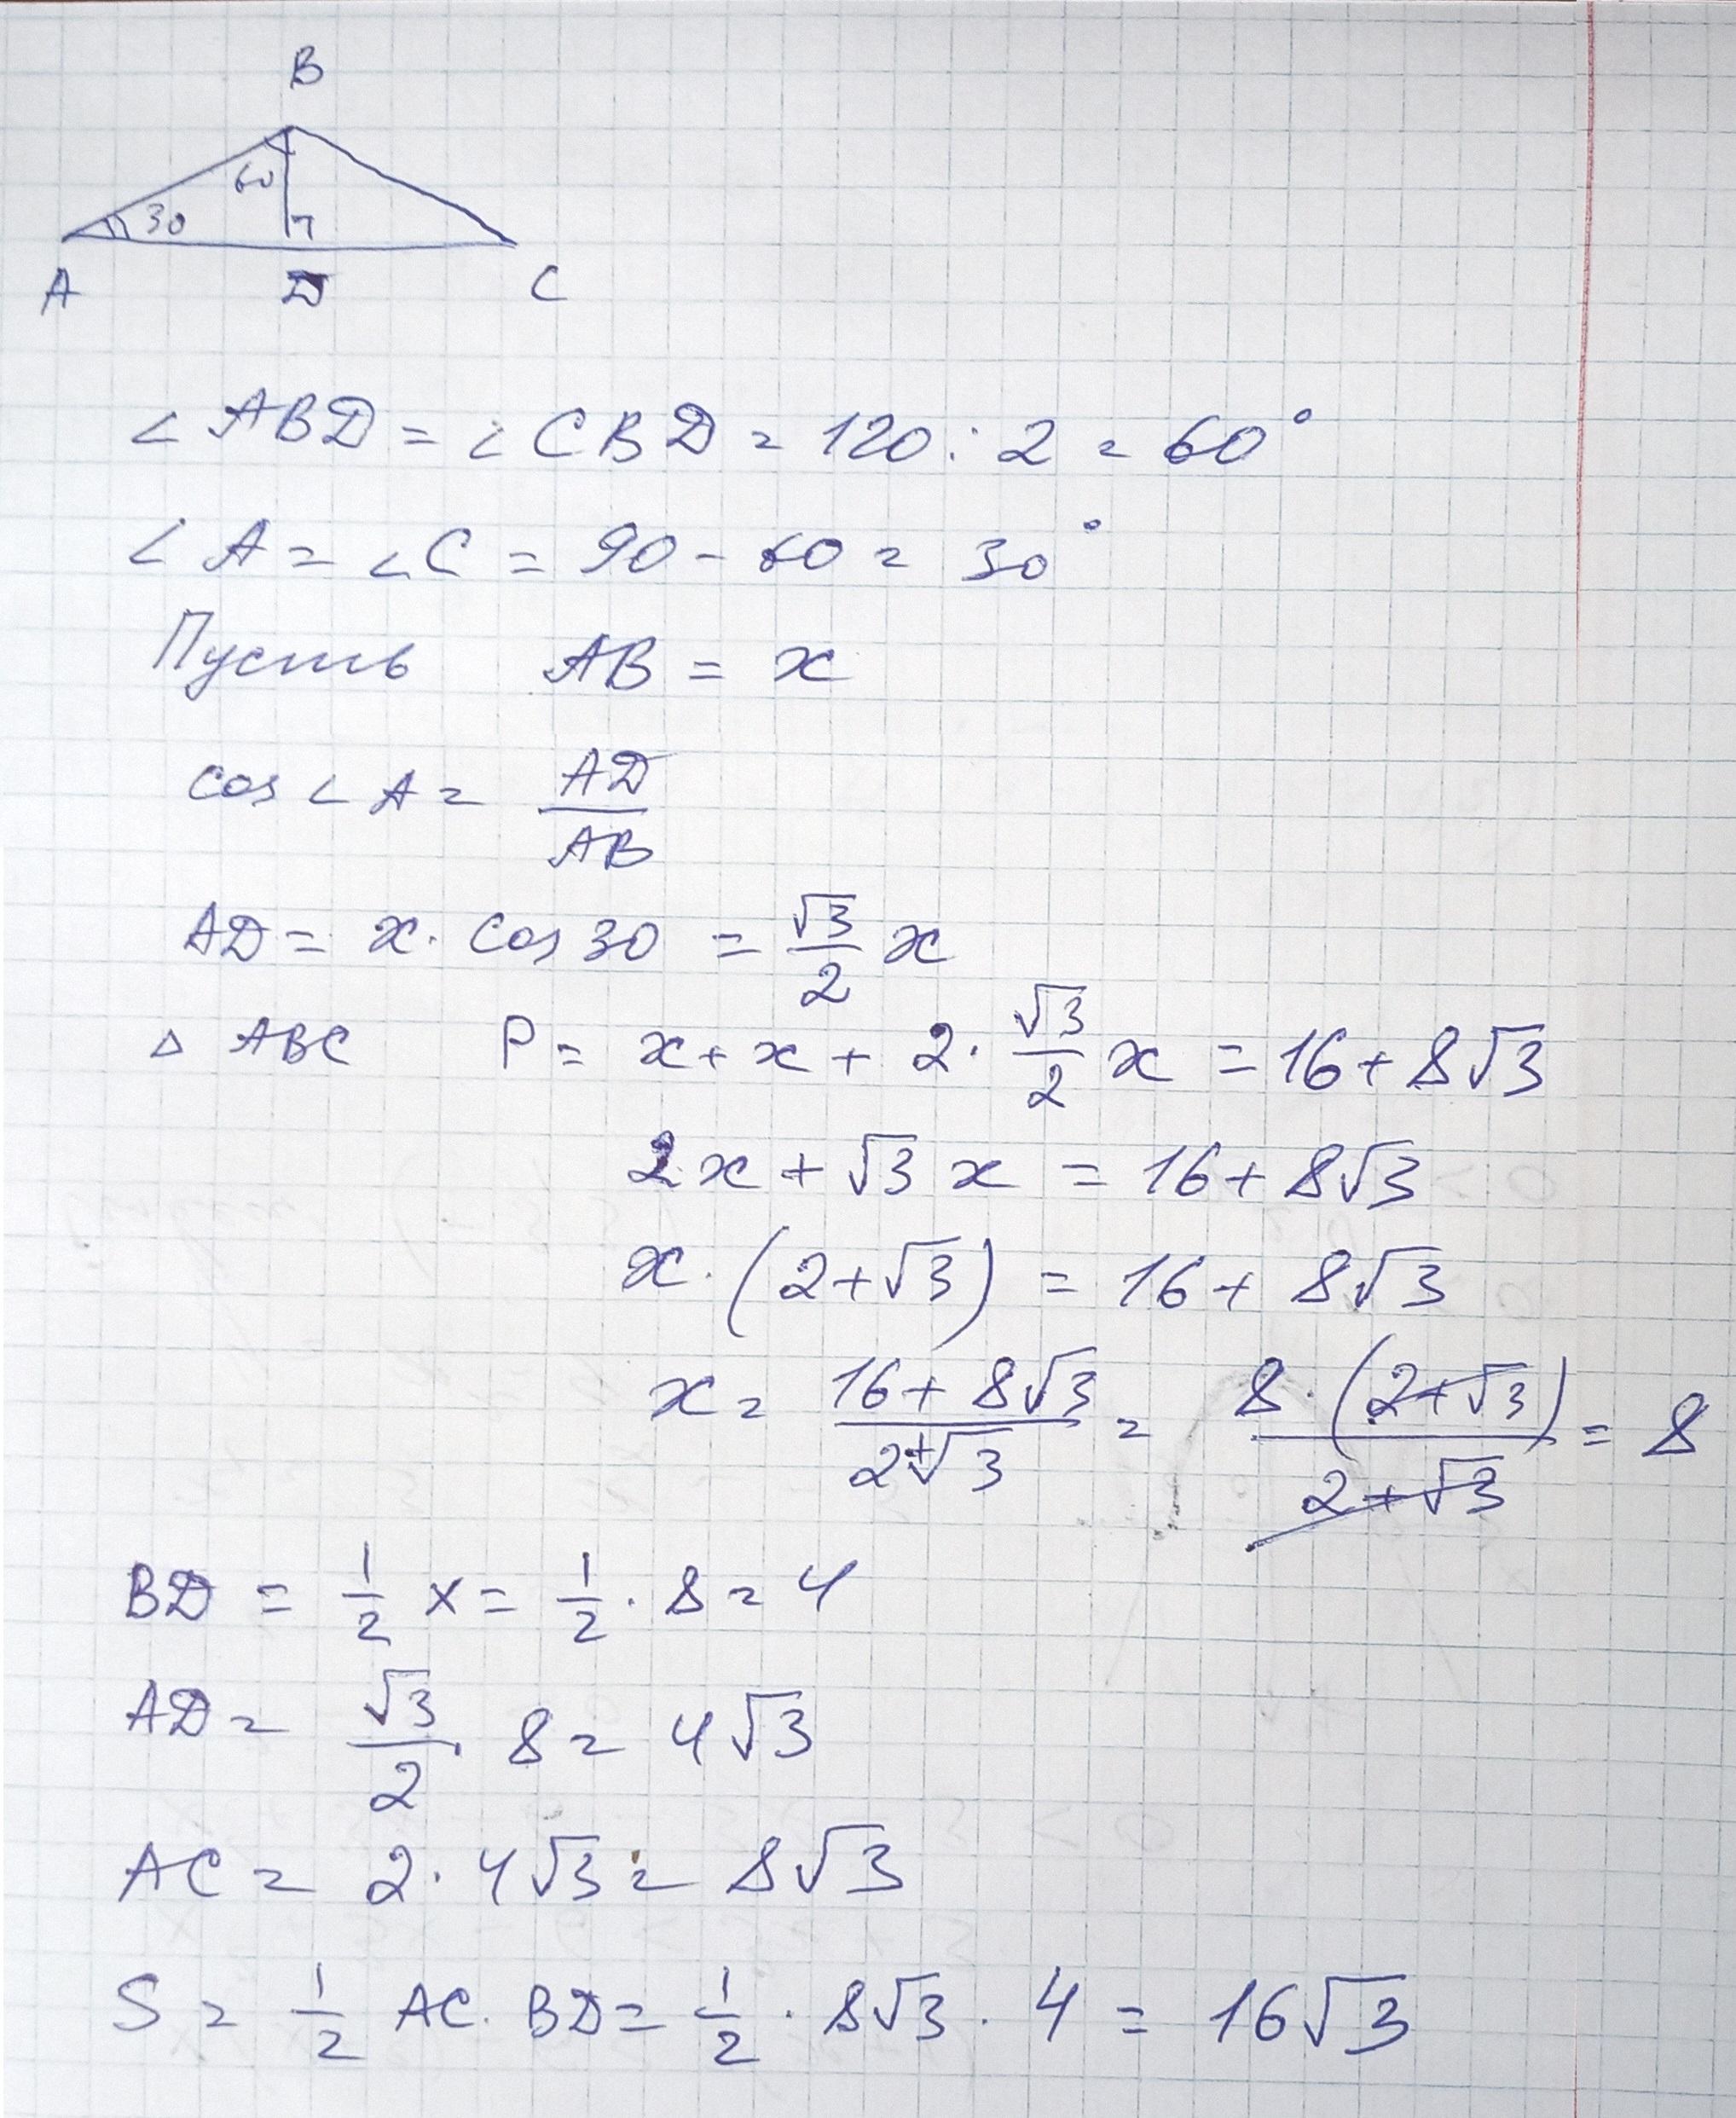 B
60
30
A D C
∠ABD = ∠CBD = 120 : 2 = 60°
∠A = ∠C = 90 - 60 = 30°
Пусть AB = x
cos∠A = AD/AB
AD = x · cos 30 = √3/2 x
△ ABC P = x + x + 2 · √3/2 x = 16 + 8√3
2x + √3 x = 16 + 8√3
x · (2 + √3) = 16 + 8√3
x = (16 + 8√3)/(2 + √3) = 8 · (2 + √3)/(2 + √3) = 8
BD = 1/2 x = 1/2 · 8 = 4
AD = √3/2 · 8 = 4√3
AC = 2 · 4√3 = 8√3
S = 1/2 AC · BD = 1/2 · 8√3 · 4 = 16√3